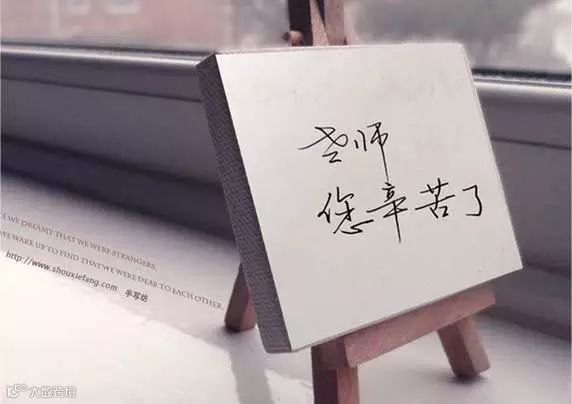 老师
您辛苦了
CE WE DREAMT THAT WE WERE STRANGERS.
WE WAKE UP TO FIND THAT WE WERE DEAR TO EACH OTHER.
http://www.shouxiefang.com 手写坊
大数跨境